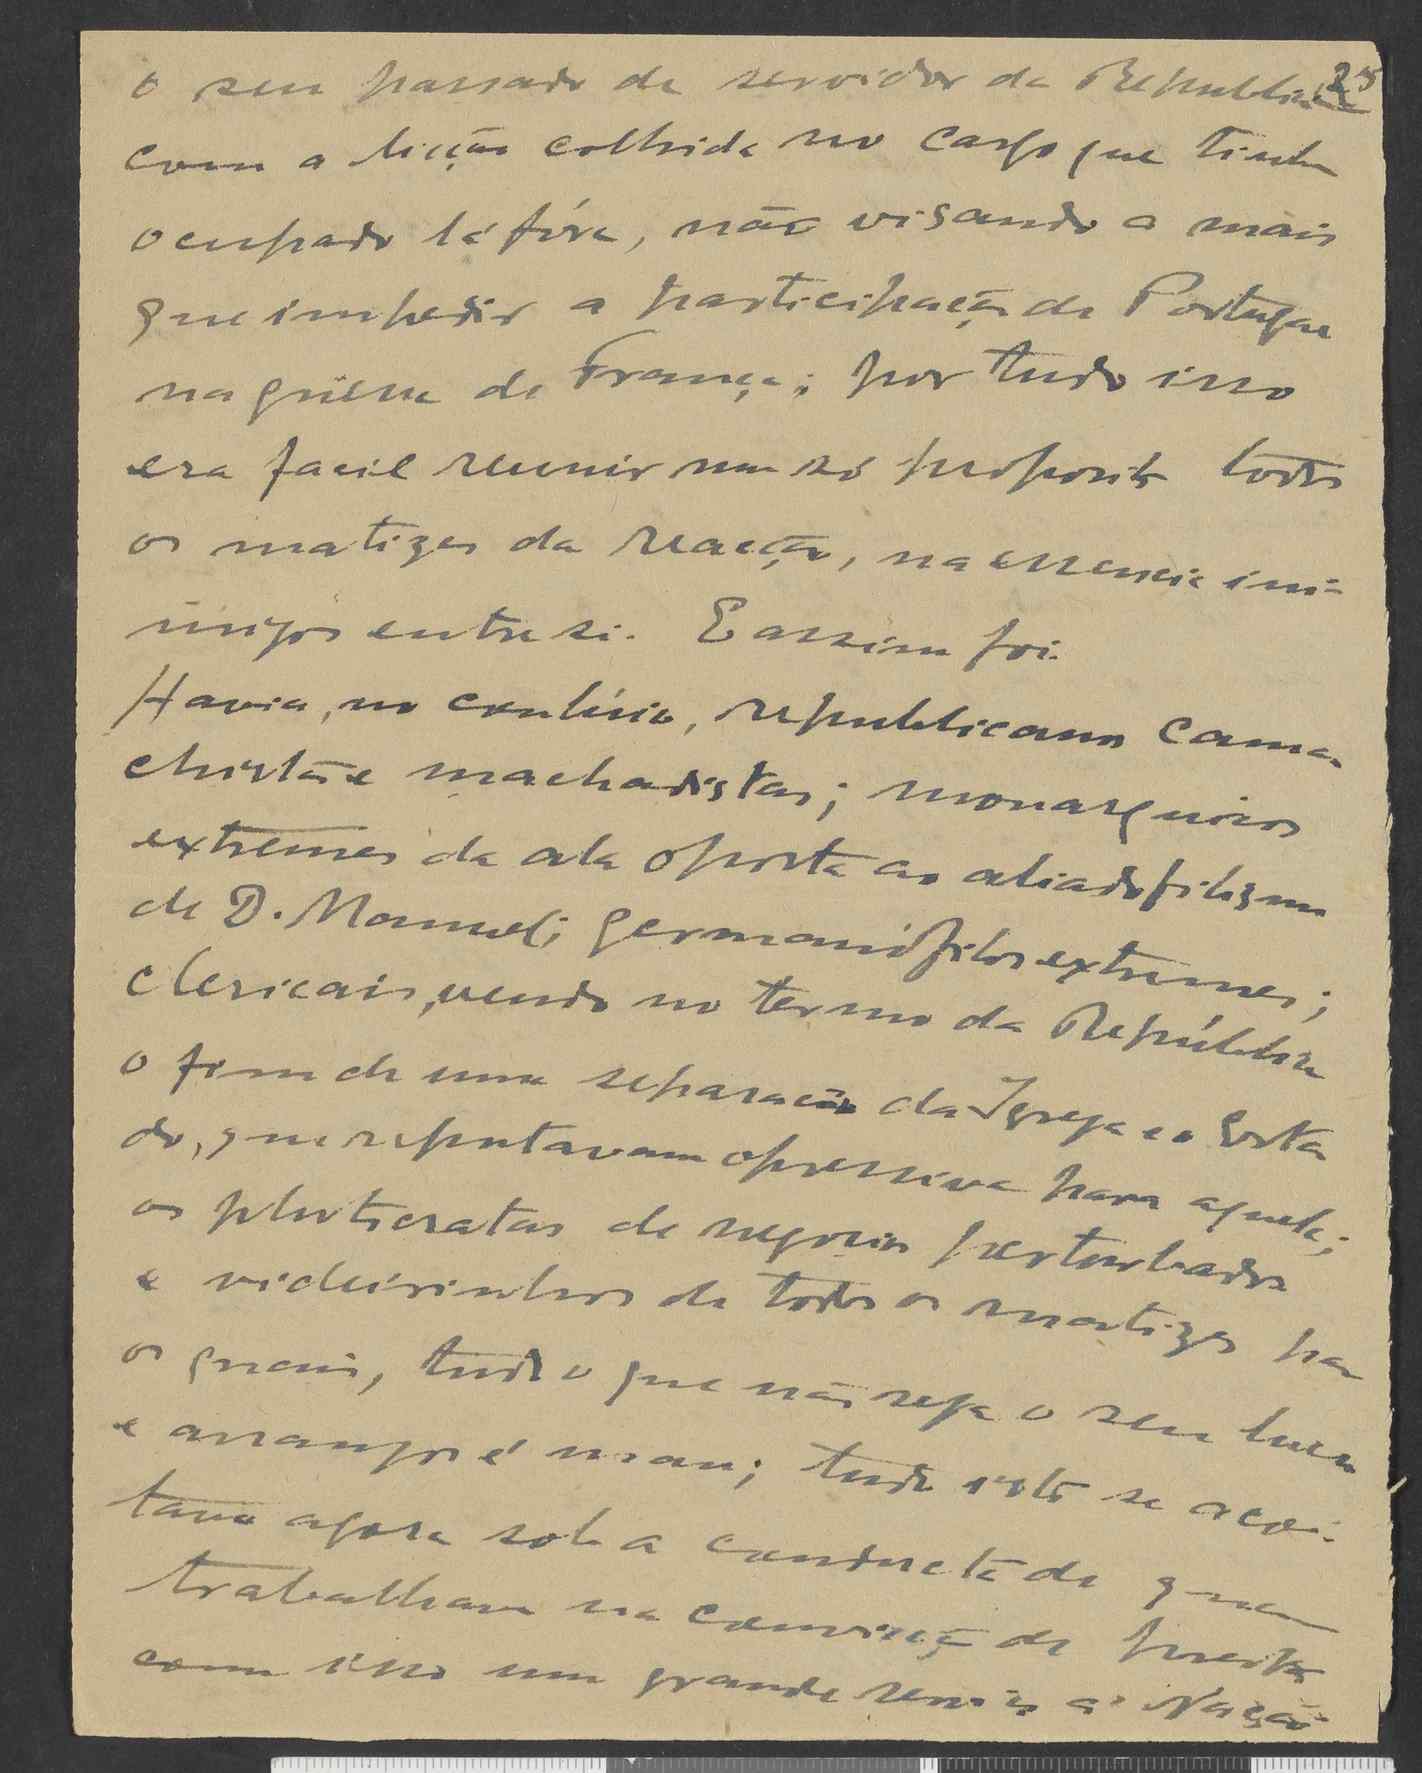 o seu passado de servidor da Republica
com a licção colhida no cargo que tinha
ocupado lá fóra, não visando a mais
que impedir a participação de Portugal
na guerra de França; por tudo isso
era facil reunir num só proposito todos
os matizes da reacção, na essencia ini-
migos entre si. E assim foi.
Havia, no conlúio, republicanos cama-
chistas e machadistas; monarquicos
extremes da ala oposta ao aliadofilismo
de D. Manuel; germanófilos extremes;
clericais, vendo no termo da República
o fim de uma separação da Igreja e o Esta
do, que reputavam opressiva para aquela;
os plutocratas de negocios perturbados
e videirinhos de todos os matizes para
os quais, tudo o que não seja o seu lucro
e arranjos é mau; tudo isto se acoi-
tava agora sob a conducta de quem
trabalhava na convicção de prestar
com isso um grande serviço á Nação